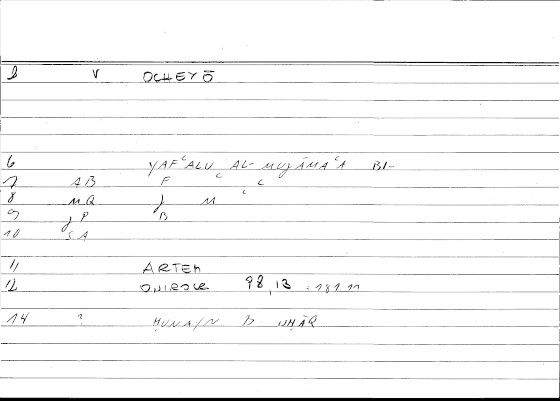 2 V OCHEYŌ
6 YAFʿALU AL-MUJĀMAʿA BI-
7 AB F ʿ L
8 MQ J M ʿ
9 JP B
10 SA
11 ARTEM
12 ONIROCR 98,13 = 181.11
14 ? ḤUNAYN B ISḤĀQ